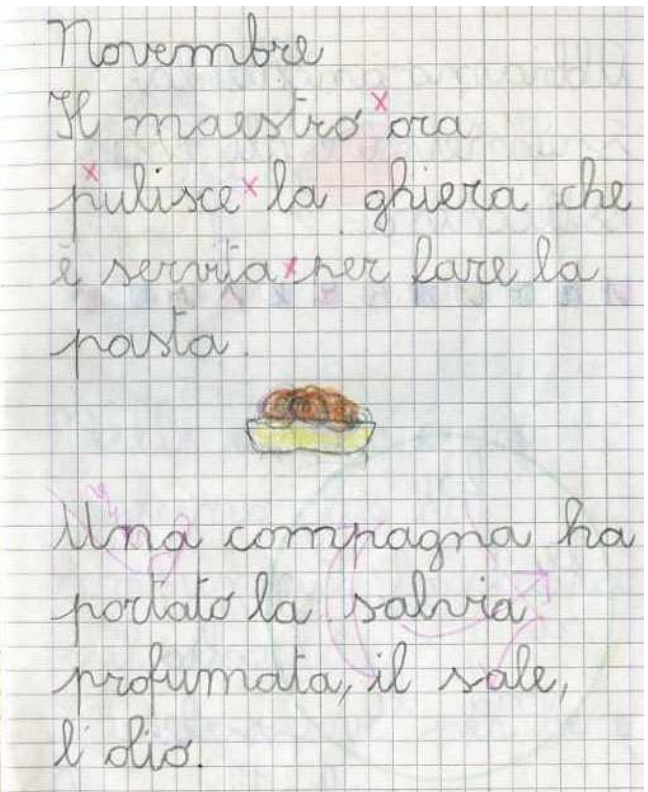 Novembre
Il maestro ora
pulisce la ghiera che
è servita per fare la
pasta.
Una compagna ha
portato la salvia
profumata, il sale,
l'olio.